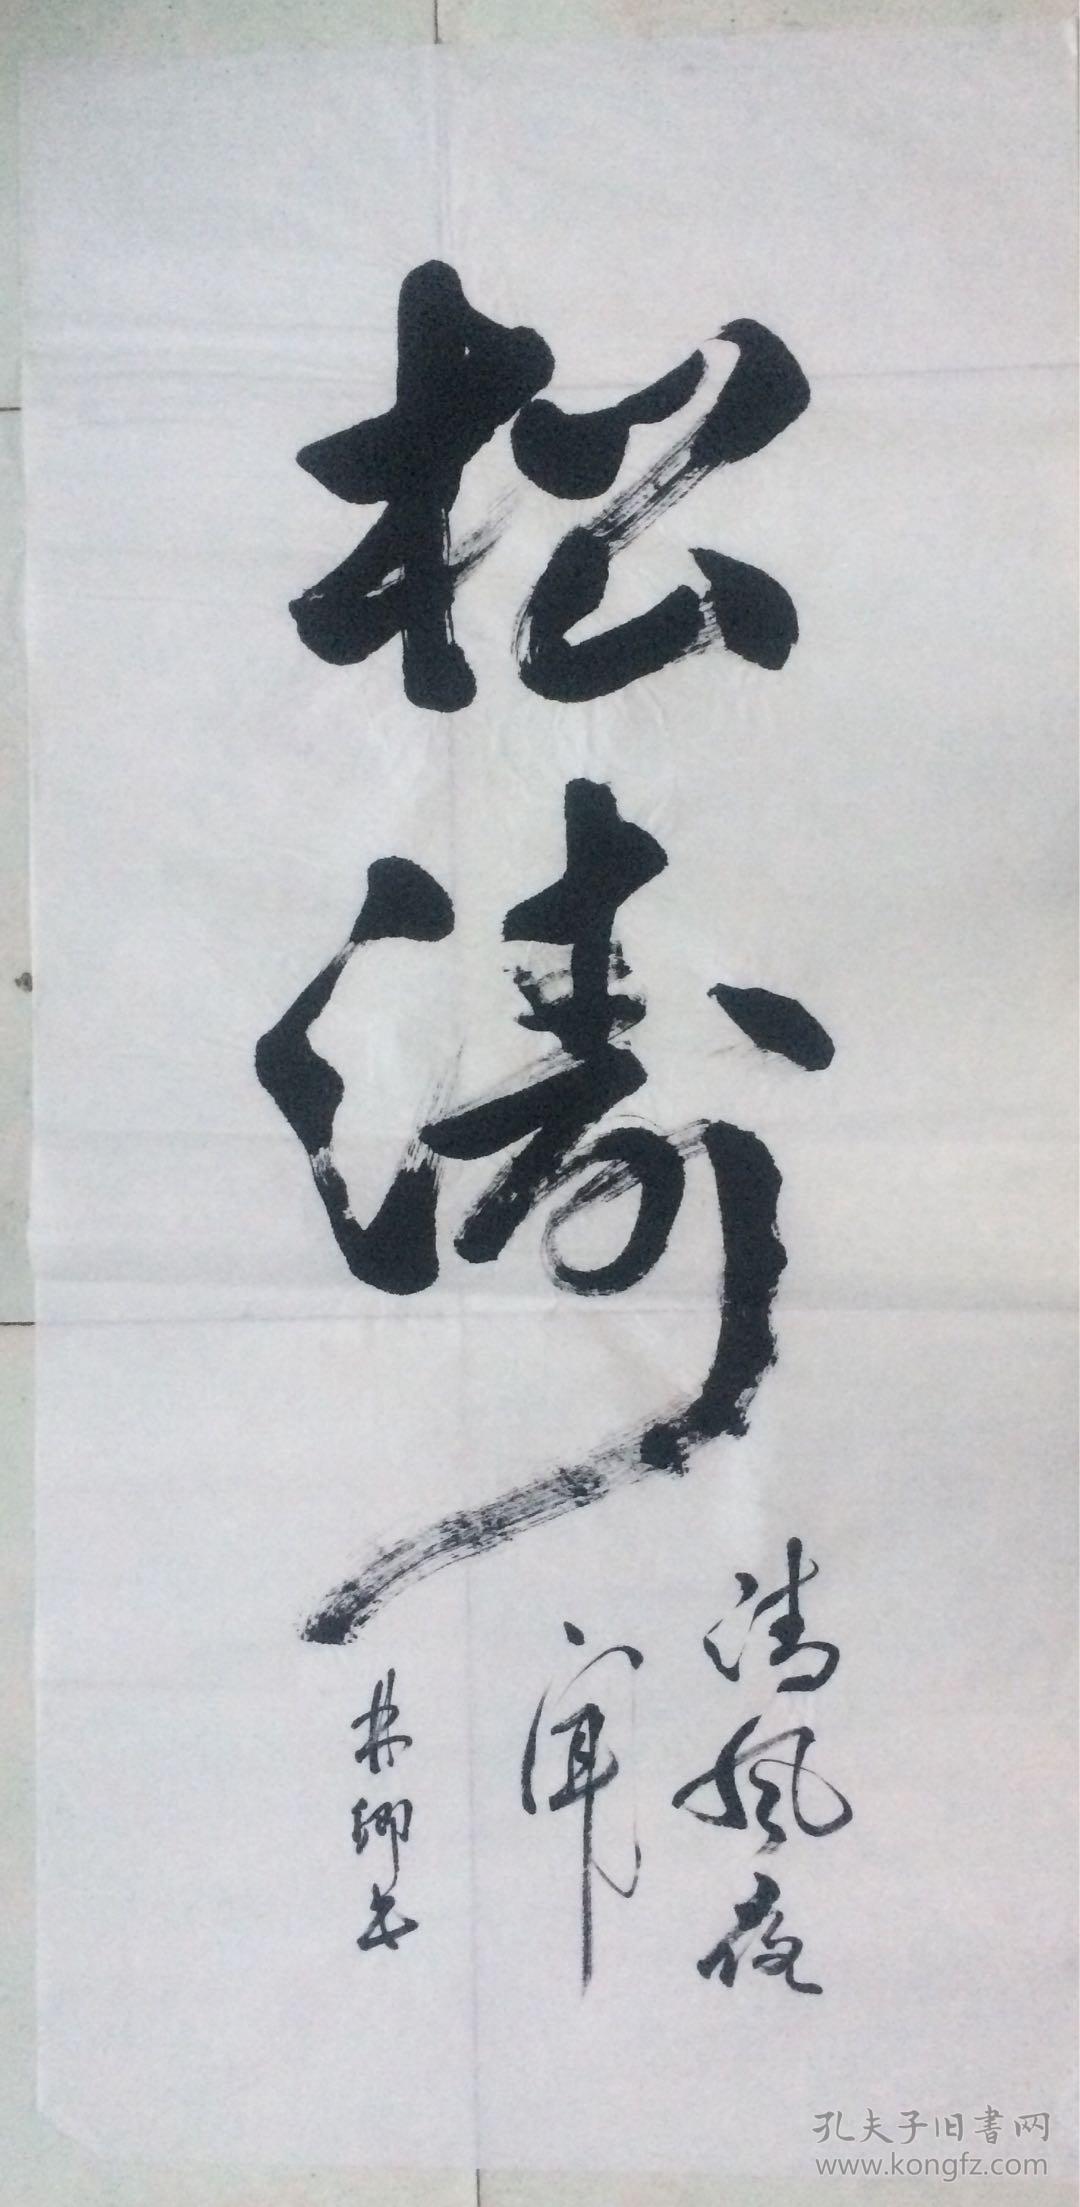 松涛
清风夜
闻
林卿书
孔夫子旧書网
www.kongfz.com